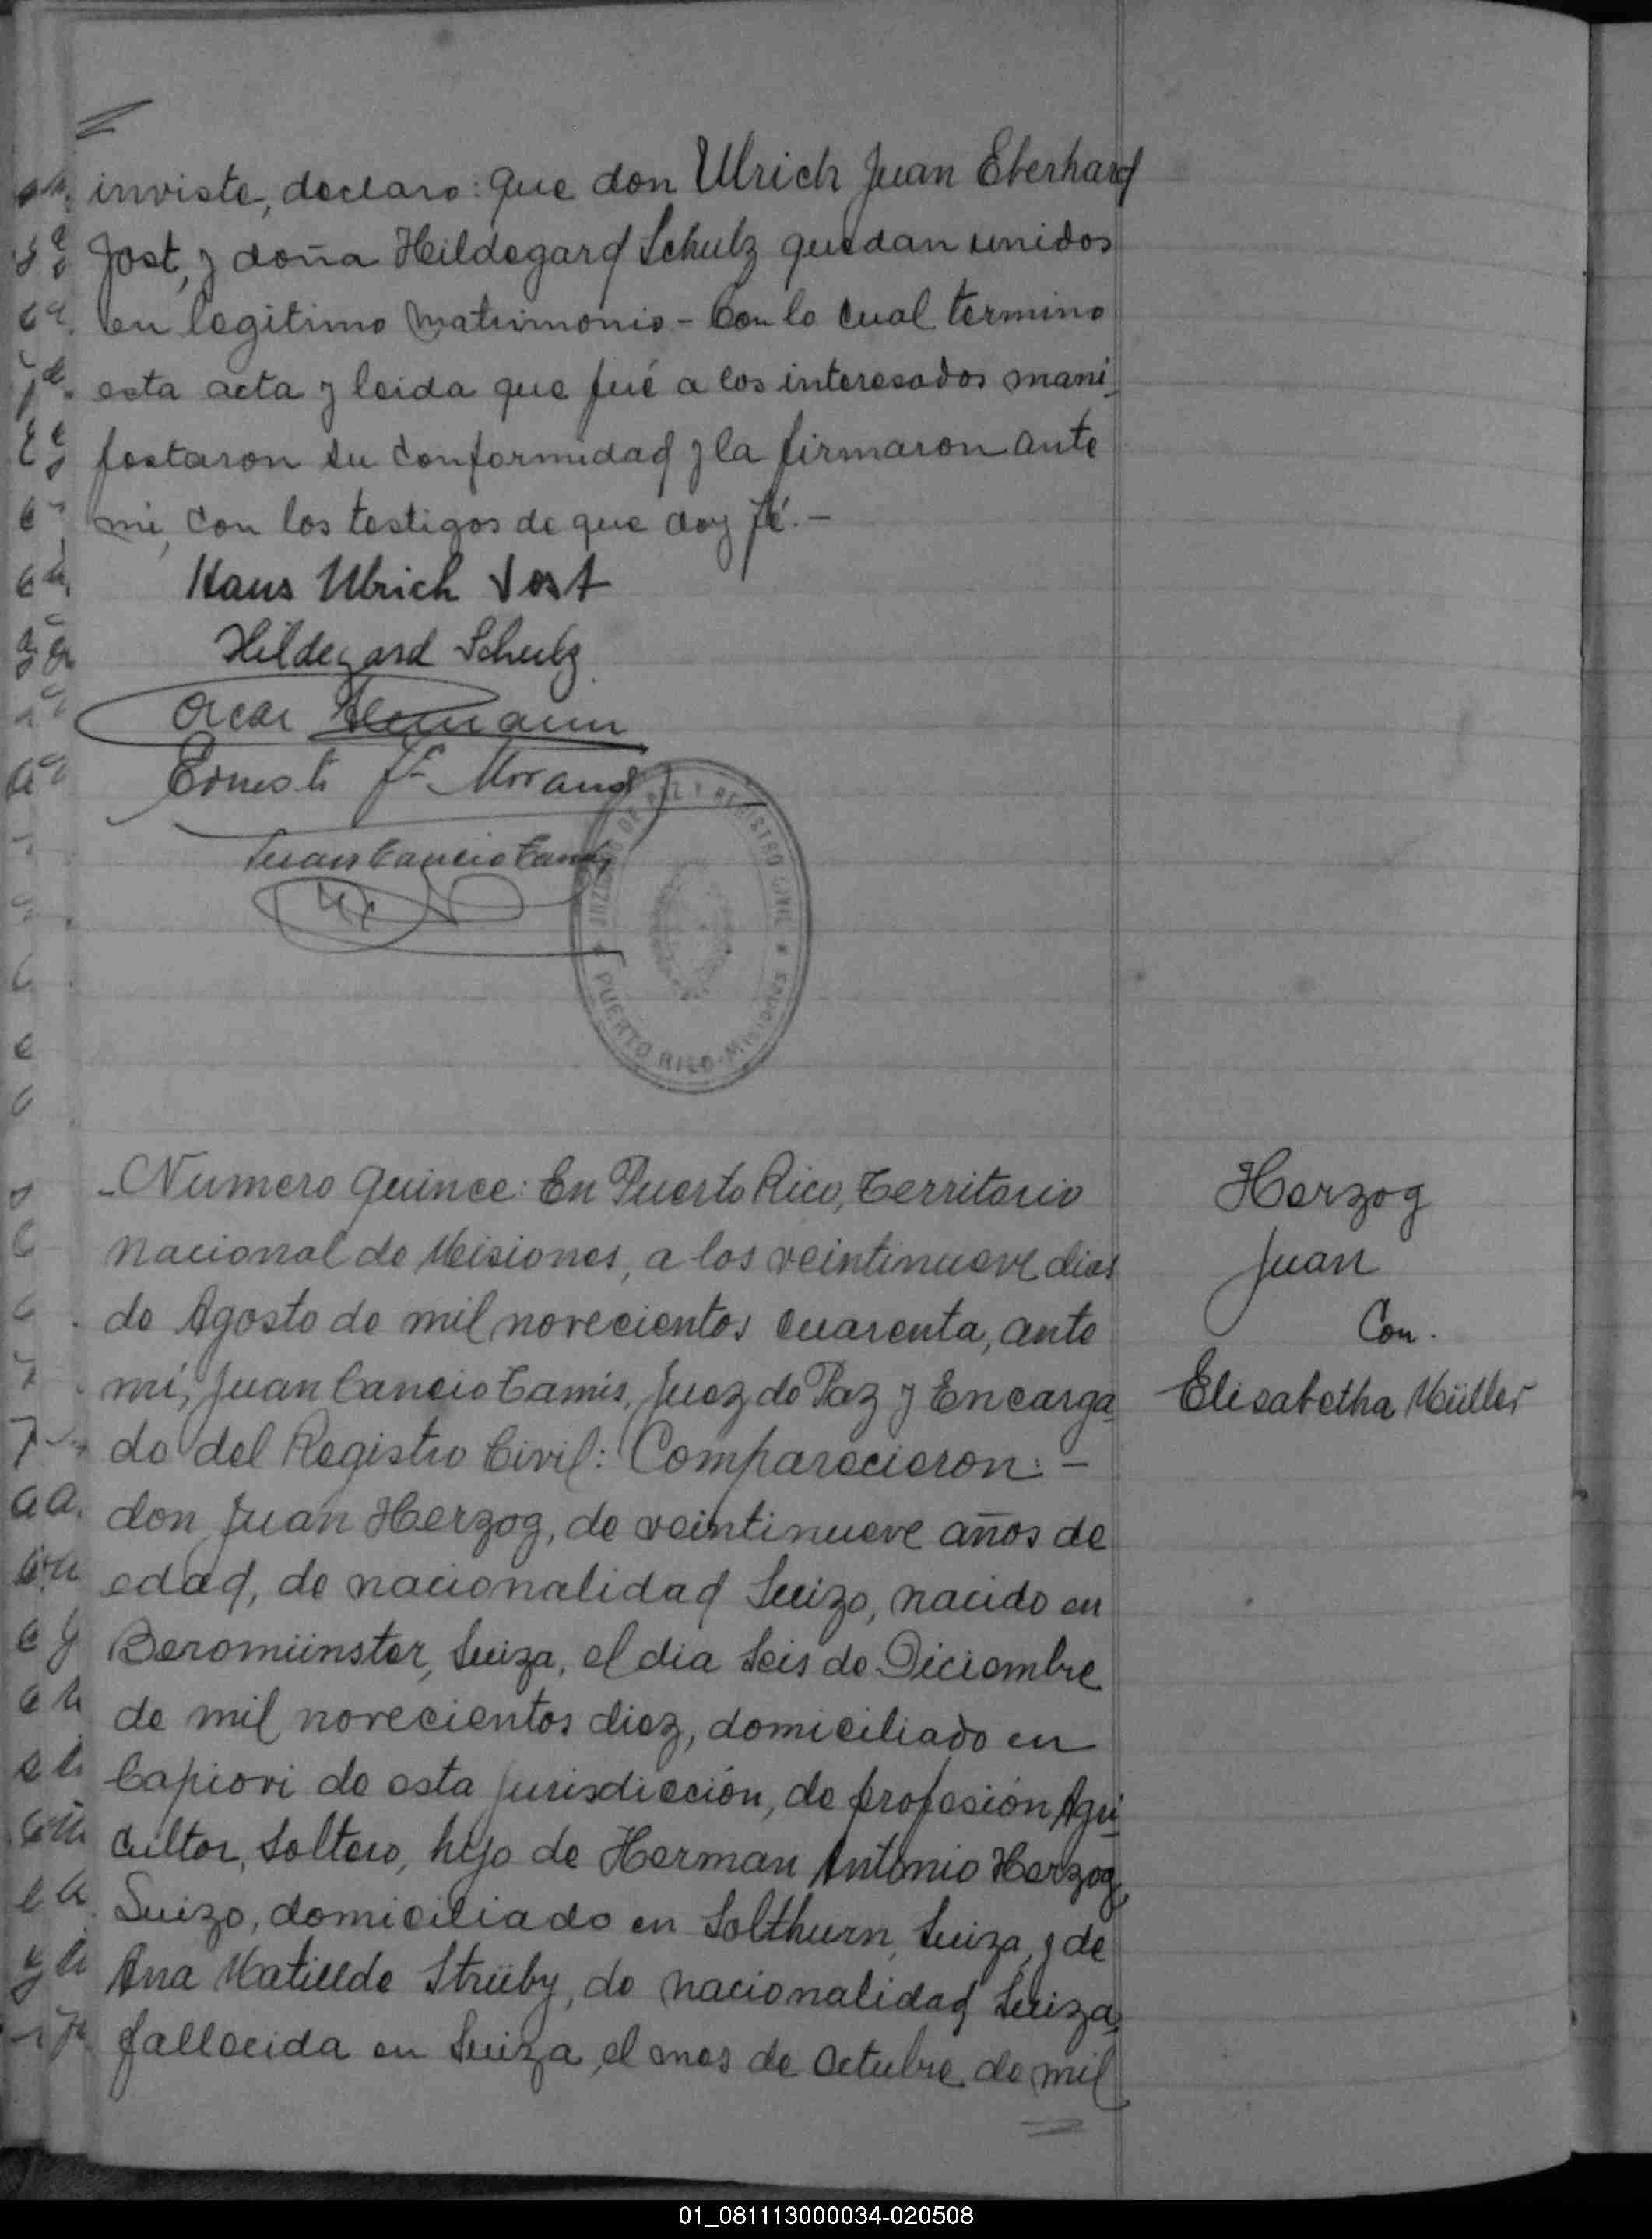 inviste, declaro: que don Ulrich Juan Eberhard
Jost, y doña Hildegard Schulz quedan unidos
en legitimo matrimonio - Con lo cual termino
esta acta y leida que fué a los interesados mani-
festaron su conformidad y la firmaron ante
mi, con los testigos de que doy fé. -
Hans Ulrich Jost
Hildegard Schulz
Oscar
Ernesto F. Morand
Juan Cancio Tamis
JUZGADO DE PAZ Y REGISTRO CIVIL
PUERTO RICO - MISIONES
- Numero quince: En Puerto Rico, Territorio
nacional de Misiones, a los veintinueve dias
de Agosto de mil novecientos cuarenta, ante
mi, Juan Cancio Tamis, Juez de Paz y Encarga-
do del Registro Civil: Comparecieron: -
don Juan Herzog, de veintinueve años de
edad, de nacionalidad Suizo, nacido en
Beromünster, Suiza, el dia Seis de Diciembre
de mil novecientos diez, domiciliado en
Capiovi de esta jurisdicción, de profesión Agri-
cultor, Soltero, hijo de Herman Antonio Herzog,
Suizo, domiciliado en Solthurn, Suiza, y de
Ana Matilde Strüby, de nacionalidad Suiza,
fallecida en Suiza, el mes de Octubre de mil
Herzog
Juan
Con.
Elisabetha Müller
01_081113000034-020508